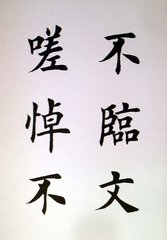 不臨文
嗟悼不